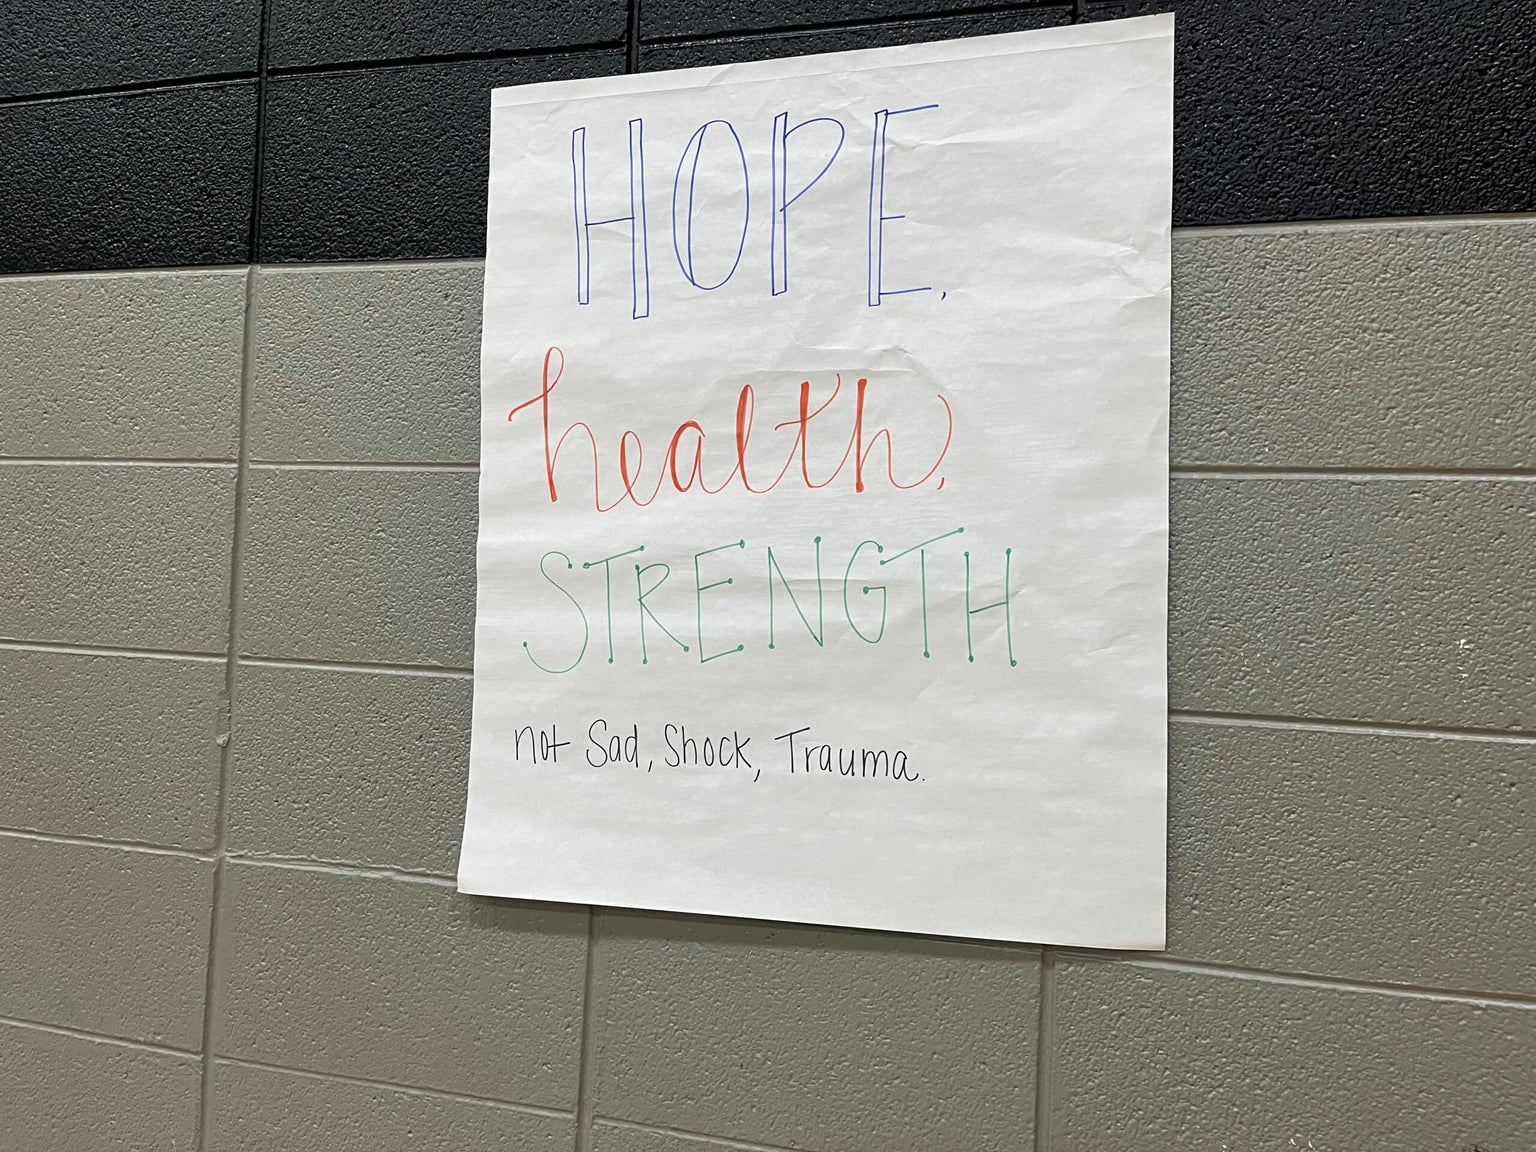 HOPE,
health,
STRENGTH
not Sad, Shock, Trauma.